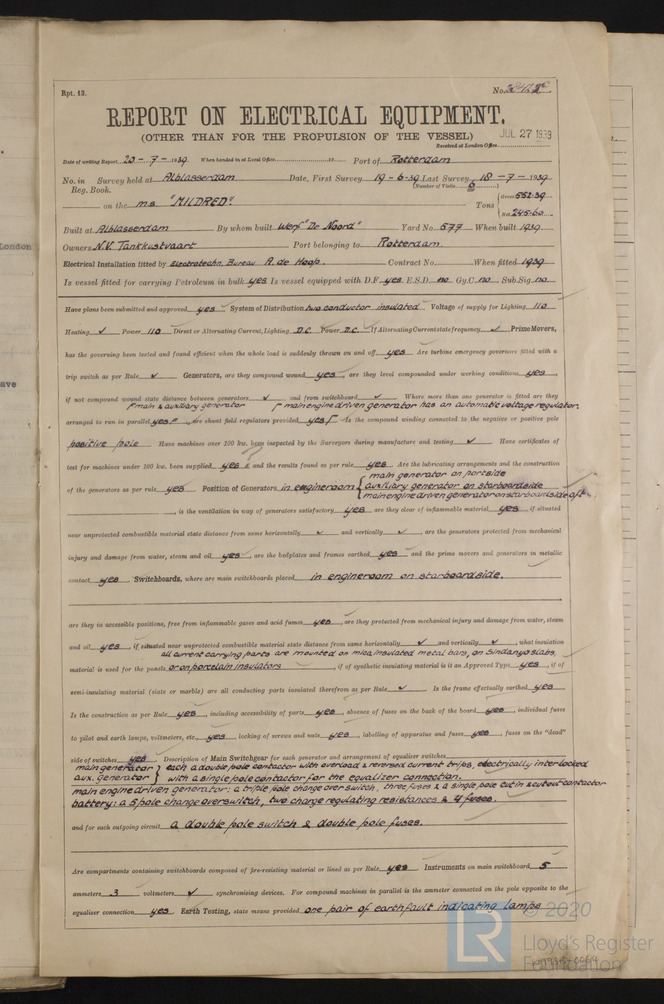 London
ave
Rpt. 13.
No.
REPORT ON ELECTRICAL EQUIPMENT.
(OTHER THAN FOR THE PROPULSION OF THE VESSEL)
JUL 27 1939
Received at London Office
Date of writing Report 20 - 7 - 1939 When handed in at Local Office 19 Port of Rotterdam
No. in Survey held at Alblasserdam Date, First Survey 19 - 6 - 39 Last Survey 18 - 7 - 1939
Reg. Book. (Number of Visits 6 )
on the m.s. "MILDRED" Tons { Gross 552.39
Net 245.60
Built at Alblasserdam By whom built Werf "De Noord" Yard No. 577 When built 1939
Owners N.V. Tankkustvaart Port belonging to Rotterdam
Electrical Installation fitted by Electrotechn. Bureau A. de Hoop. Contract No. When fitted 1939
Is vessel fitted for carrying Petroleum in bulk yes Is vessel equipped with D.F. yes E.S.D. no Gy.C. no Sub.Sig. no
Have plans been submitted and approved yes System of Distribution two conductor insulated Voltage of supply for Lighting 110
Heating ✓ Power 110 Direct or Alternating Current, Lighting D.C. Power D.C. If Alternating Current state frequency ✓ Prime Movers,
has the governing been tested and found efficient when the whole load is suddenly thrown on and off yes Are turbine emergency governors fitted with a
trip switch as per Rule ✓ Generators, are they compound wound yes, are they level compounded under working conditions yes,
if not compound wound state distance between generators ✓ and from switchboard ✓ Where more than one generator is fitted are they
main & auxiliary generator main engine driven generator has an automatic voltage regulator.
arranged to run in parallel yes, are shunt field regulators provided yes Is the compound winding connected to the negative or positive pole
positive pole Have machines over 100 kw. been inspected by the Surveyors during manufacture and testing ✓ Have certificates of
test for machines under 100 kw. been supplied yes and the results found as per rule yes Are the lubricating arrangements and the construction
main generator on portside
of the generators as per rule yes Position of Generators in engineroom { auxiliary generator on starboardside
main engine driven generator on starboardside aft
, is the ventilation in way of generators satisfactory yes are they clear of inflammable material yes if situated
near unprotected combustible material state distance from same horizontally ✓ and vertically ✓, are the generators protected from mechanical
injury and damage from water, steam and oil yes, are the bedplates and frames earthed yes and the prime movers and generators in metallic
contact yes Switchboards, where are main switchboards placed in engineroom on starboardside.
are they in accessible positions, free from inflammable gases and acid fumes yes, are they protected from mechanical injury and damage from water, steam
and oil yes, if situated near unprotected combustible material state distance from same horizontally ✓ and vertically ✓, what insulation
all current carrying parts are mounted on mica insulated metal bars, on Sindanyo slabs,
material is used for the panels or on porcelain insulators, if of synthetic insulating material is it an Approved Type yes, if of
semi-insulating material (slate or marble) are all conducting parts insulated therefrom as per Rule ✓ Is the frame effectually earthed yes
Is the construction as per Rule yes, including accessibility of parts yes, absence of fuses on the back of the board yes, individual fuses
to pilot and earth lamps, voltmeters, etc. yes locking of screws and nuts yes, labelling of apparatus and fuses yes, fuses on the "dead"
side of switches yes Description of Main Switchgear for each generator and arrangement of equalizer switches
main generator } each a double pole contactor with overload & reversed current trips, electrically interlocked
aux. generator with a single pole contactor for the equalizer connection.
main engine driven generator: a triple pole change over switch, three fuses & a single pole cut in & cutout contactor
battery: a 5 pole change overswitch, two charge regulating resistances & 4 fuses.
and for each outgoing circuit a double pole switch & double pole fuses.
Are compartments containing switchboards composed of fire-resisting material or lined as per Rule yes Instruments on main switchboard 5
ammeters 3 voltmeters ✓ synchronising devices. For compound machines in parallel is the ammeter connected on the pole opposite to the
equaliser connection yes Earth Testing, state means provided one pair of earth fault indicating lamps
© 2020
LR
Lloyd's Register
Foundation